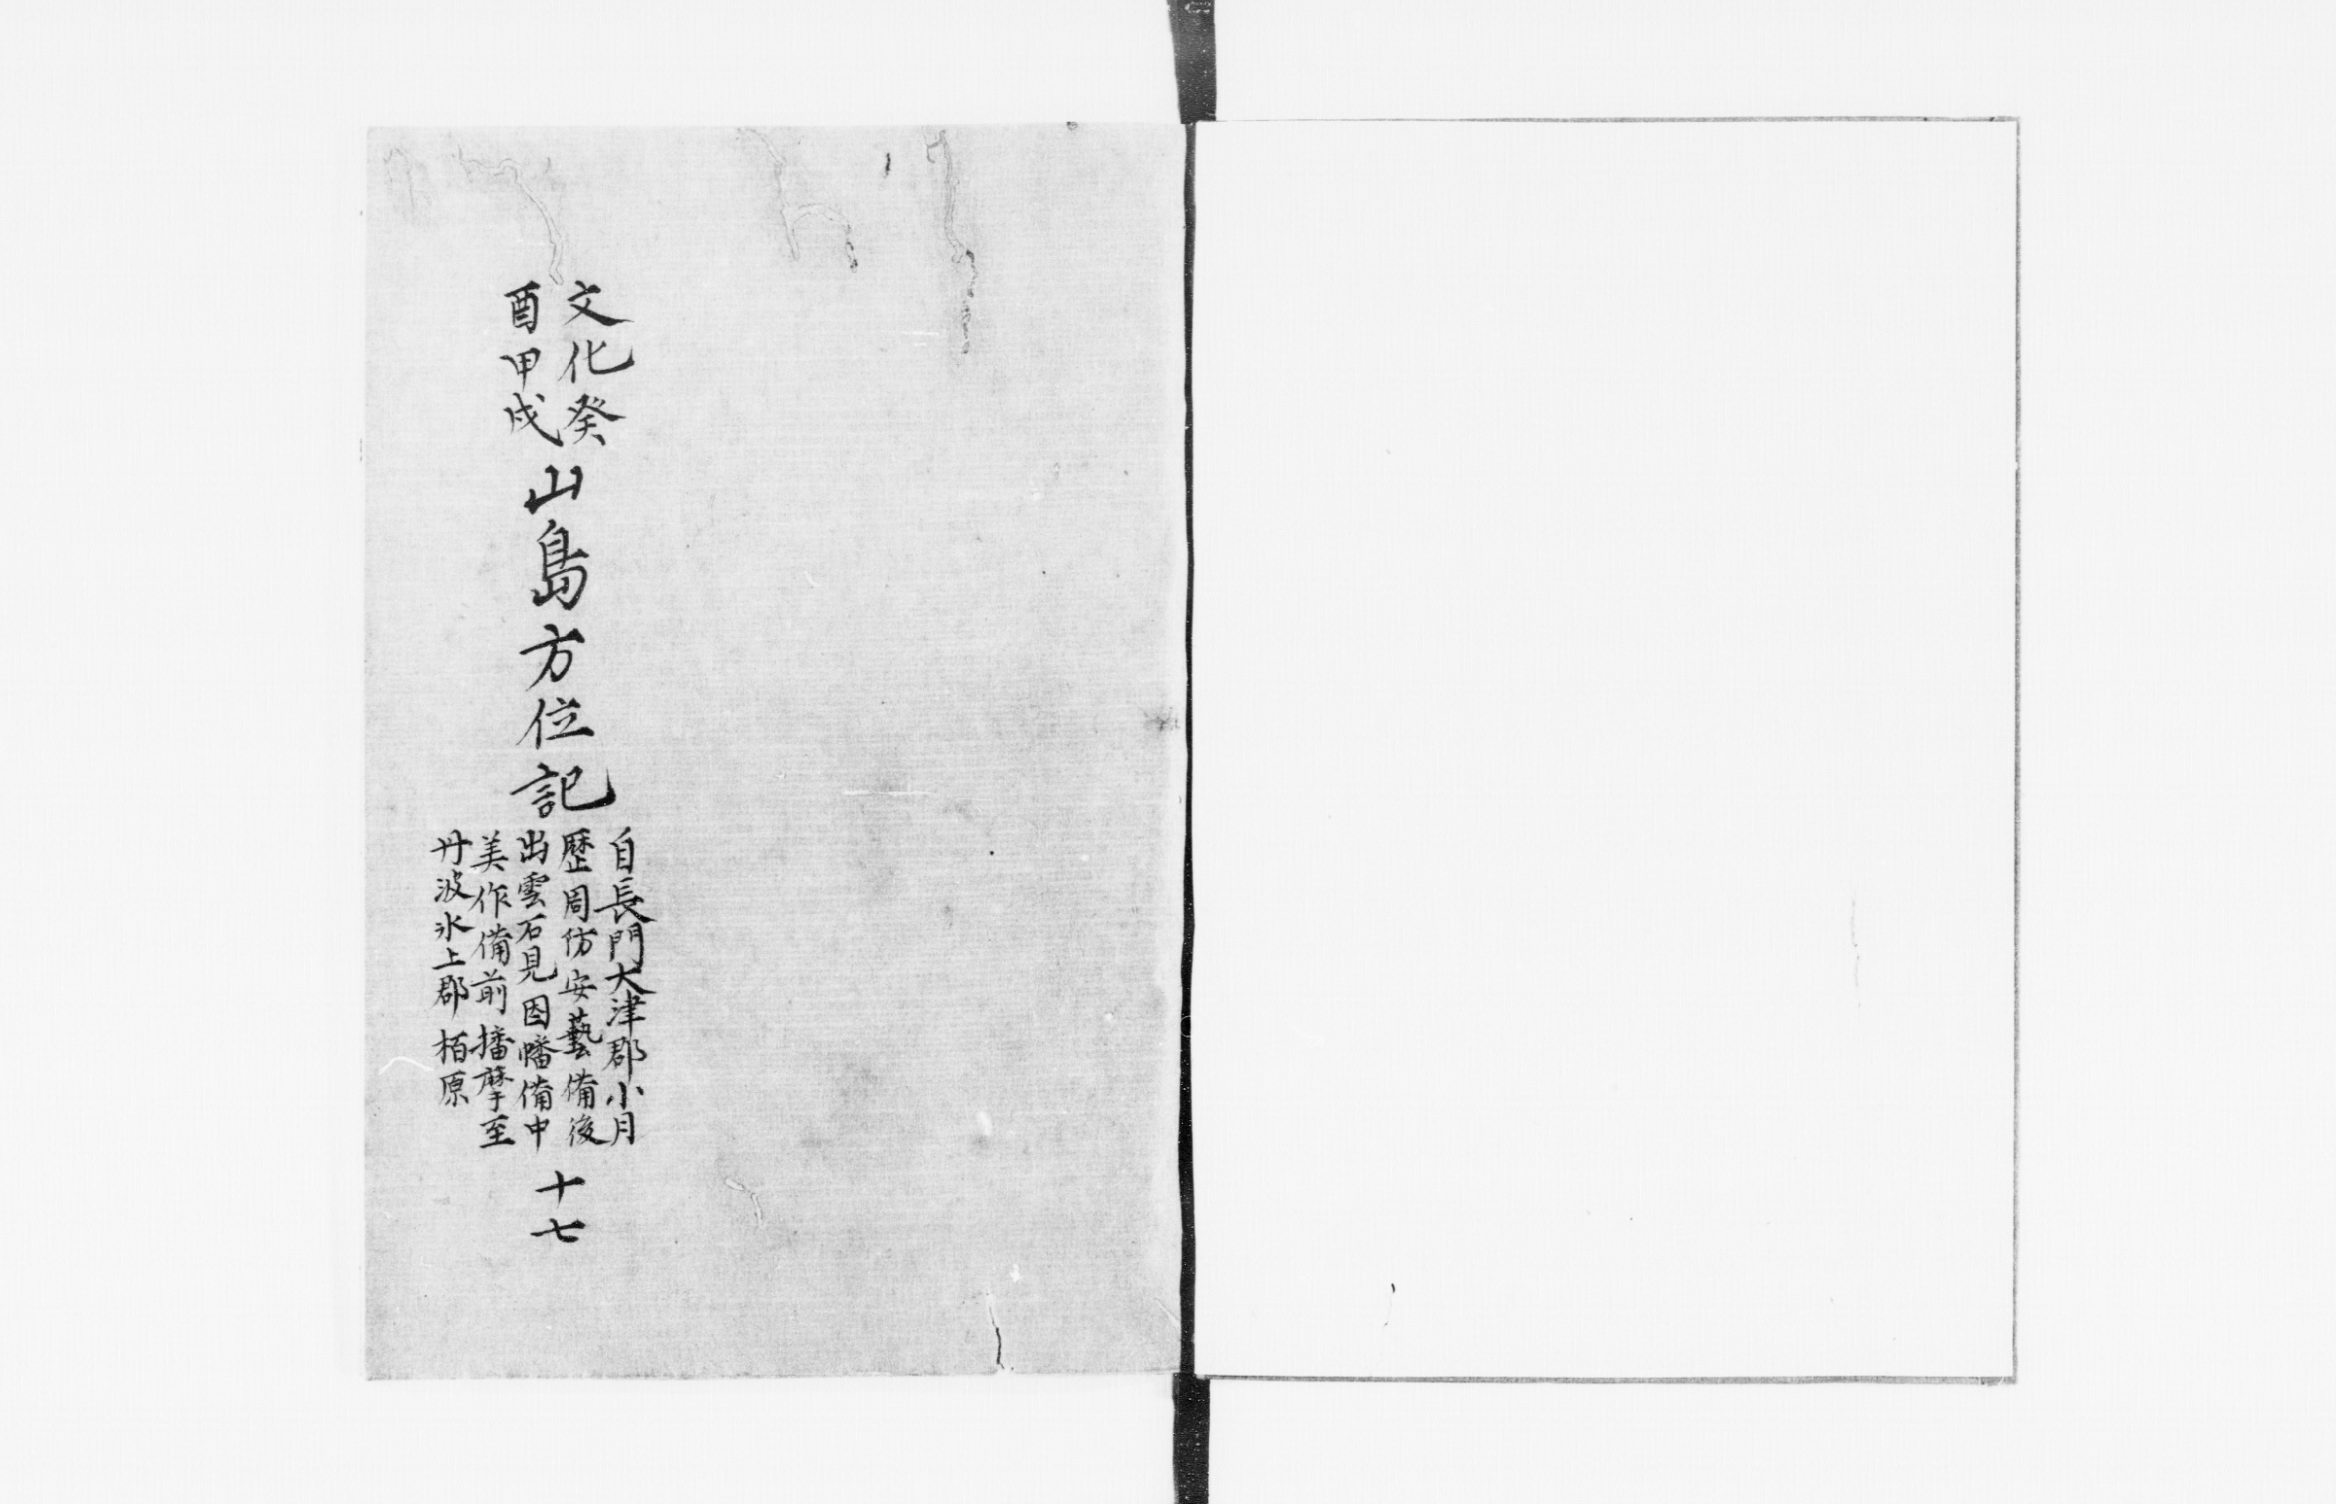 文化癸
酉甲戌
山島方位記
自長門大津郡小月
歴周防安藝備後
出雲石見因幡備中
美作備前播摩至
丹波氷上郡栢原
十七